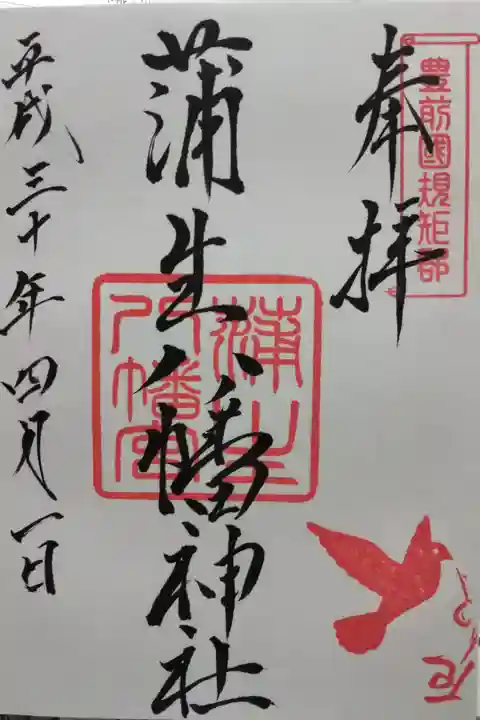 奉拝
豊前國規矩郡
蒲生八幡神社
蒲生
八幡宮
平成三十年四月一日